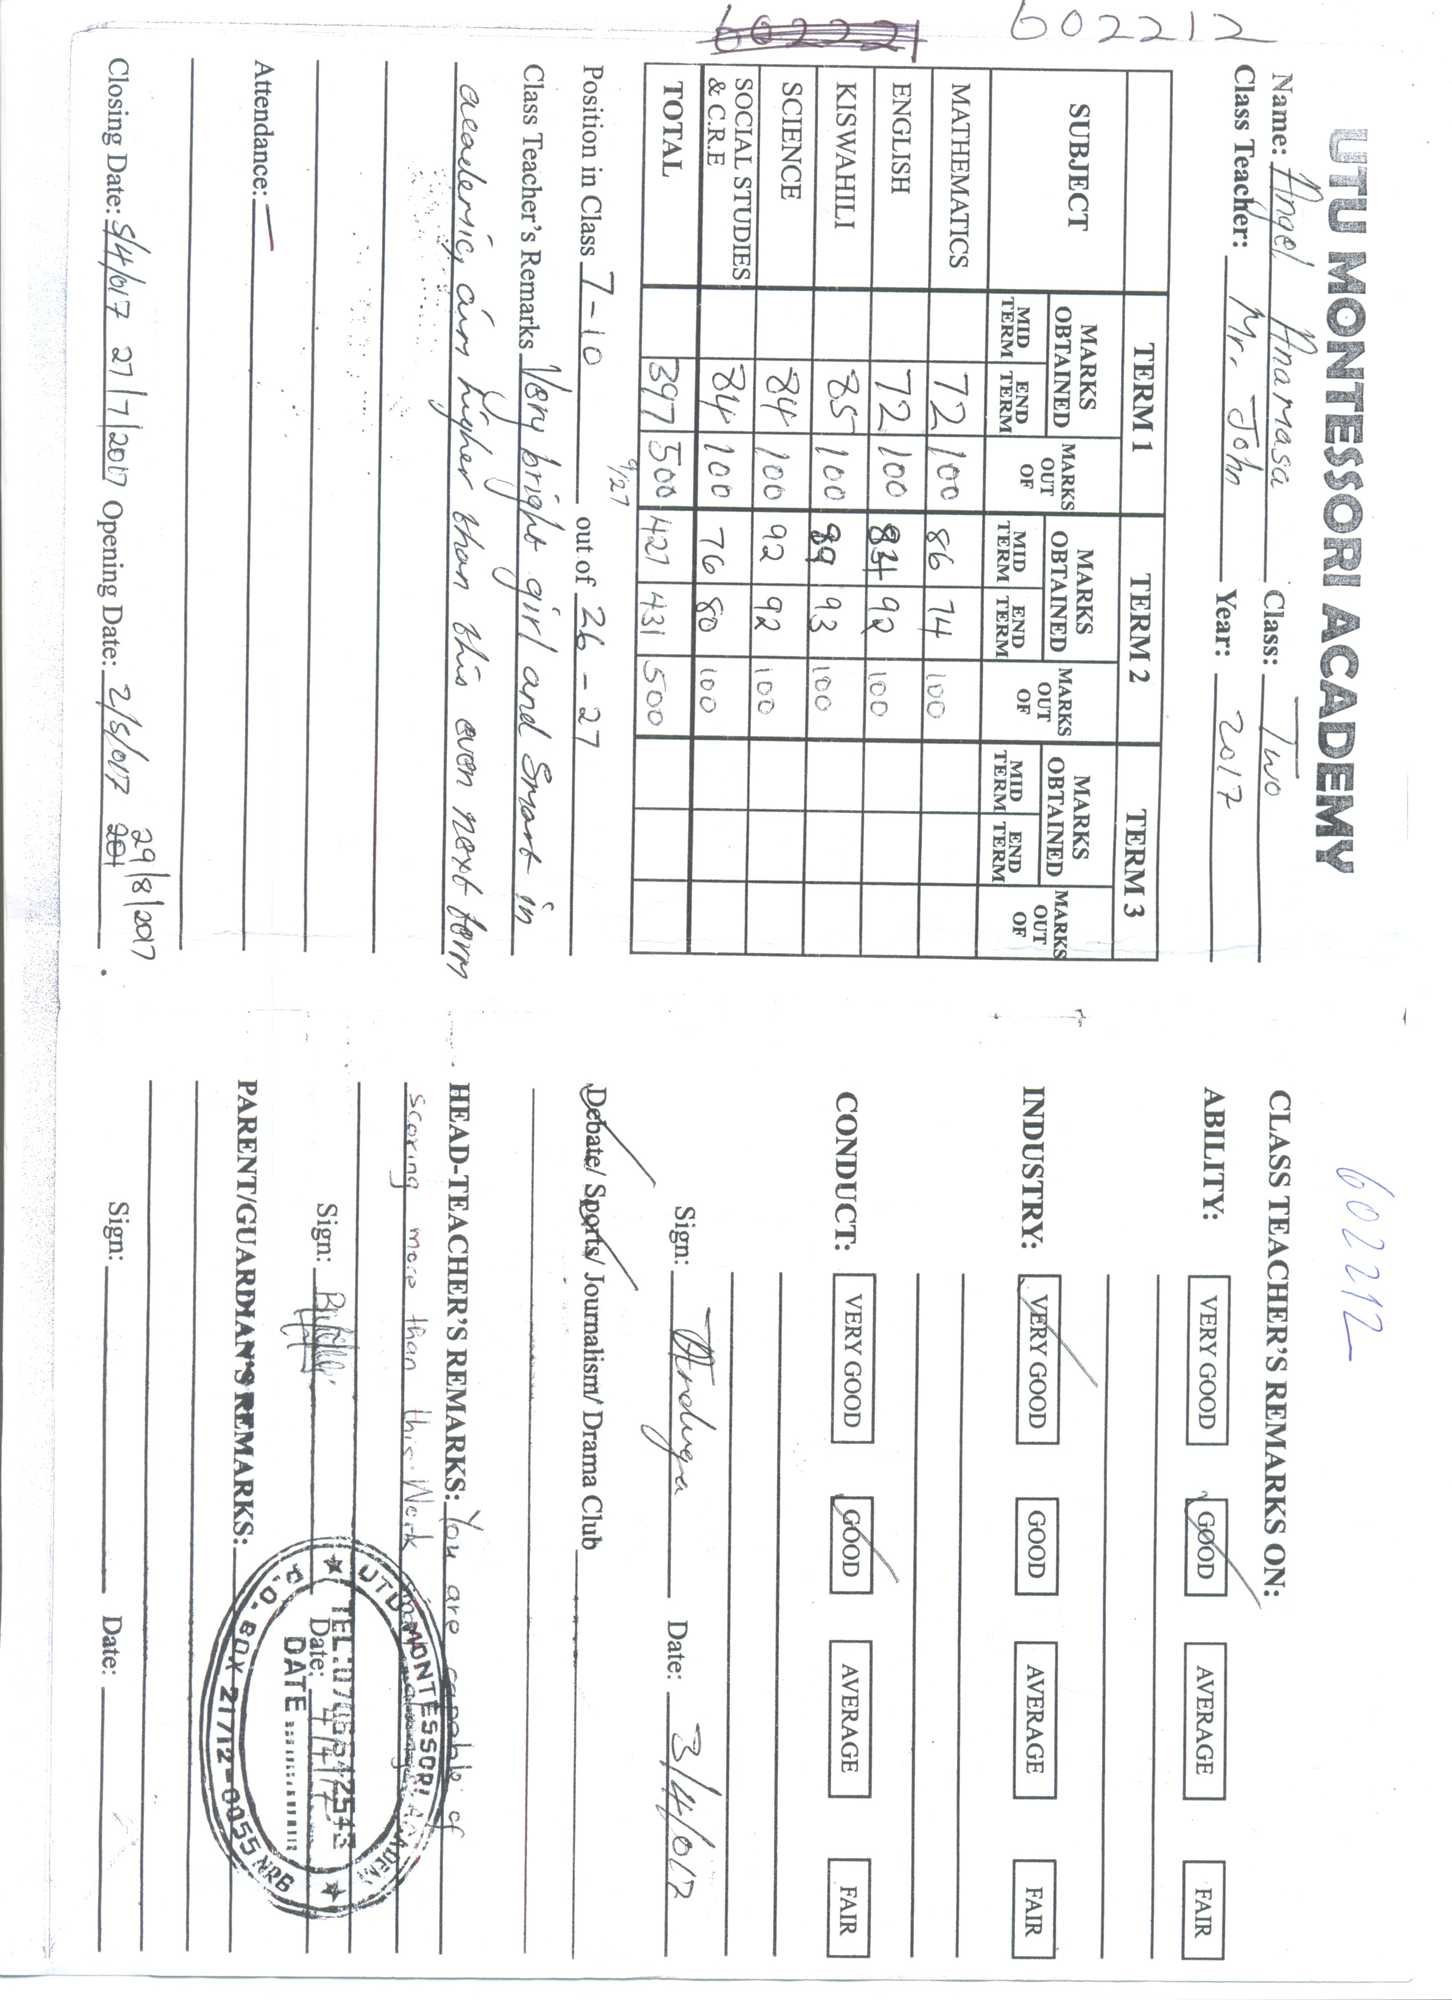 602221 602212
UTU MONTESSORI ACADEMY
Name: Angel Anamasa Class: Two
Class Teacher: Mr. John Year: 2017
TERM 1 TERM 2 TERM 3
SUBJECT MARKS OBTAINED MARKS OUT OF MARKS OBTAINED MARKS OUT OF MARKS OBTAINED MARKS OUT OF
MID TERM END TERM MID TERM END TERM MID TERM END TERM
MATHEMATICS 72 100 86 74 100
ENGLISH 72 100 83 92 100
KISWAHILI 85 100 89 93 100
SCIENCE 84 100 92 92 100
SOCIAL STUDIES & C.R.E 84 100 76 80 100
TOTAL 397 500 427 431 500
9/27
Position in Class 7-10 out of 26-27
Class Teacher's Remarks Very bright girl and Smart in
academic, aim higher than this even next term
Attendance: —
29/8/2017
Closing Date: 5/4/017 27/7/2017 Opening Date: 2/5/017 201
602212
CLASS TEACHER'S REMARKS ON:
ABILITY: VERY GOOD GOOD AVERAGE FAIR
INDUSTRY: VERY GOOD GOOD AVERAGE FAIR
CONDUCT: VERY GOOD GOOD AVERAGE FAIR
Sign: Date: 3/4/017
Debate/ Sports/ Journalism/ Drama Club
HEAD-TEACHER'S REMARKS: You are capable of
scoring more than this. Work
Sign: Date: 4/4/17
PARENT/GUARDIAN'S REMARKS:
Sign: Date:
UTU MONTESSORI ACADEMY
DATE
P.O. BOX 21712-0055 NRB